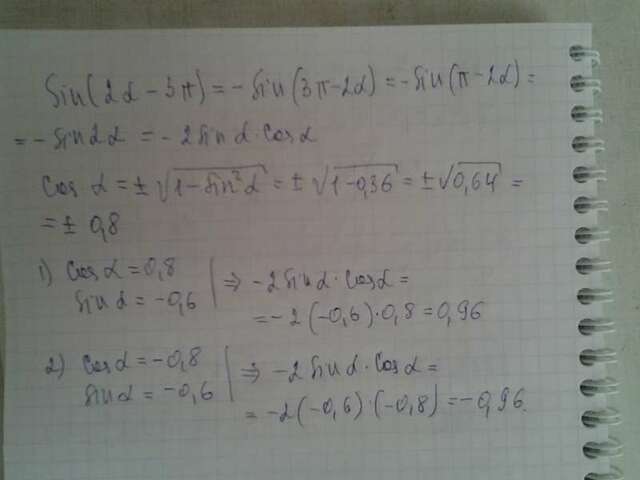 Sin(2α - 3π) = -Sin(3π-2α) = -Sin(π-2α) =
= - Sin2α = - 2Sin α·Cosα
Cos α = ± √1-Sin²α = ± √1-0,36 = ± √0,64 =
= ± 0,8
1) Cosα = 0,8 | ⇒ -2Sinα·Cosα =
Sinα = -0,6 | = -2(-0,6)·0,8 = 0,96
2) Cosα = -0,8 | ⇒ -2Sinα·Cosα =
Sinα = -0,6 | = -2(-0,6)·(-0,8) = -0,96.